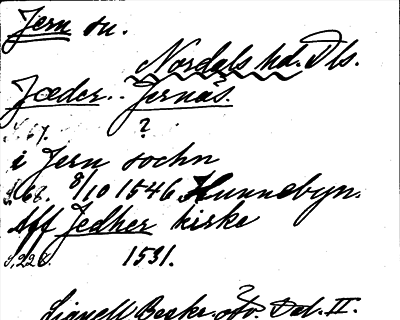 Jern sn.
Nordals hd. Dls.
Jæder. Jernäs.
S. 67. ?
i Jern sochn
S. 68. 8/10 1546 Hunnebyn.
Aff Jedher kirke
S. 228. 1531.
Lignell Beskr. öfv. Dal. II.